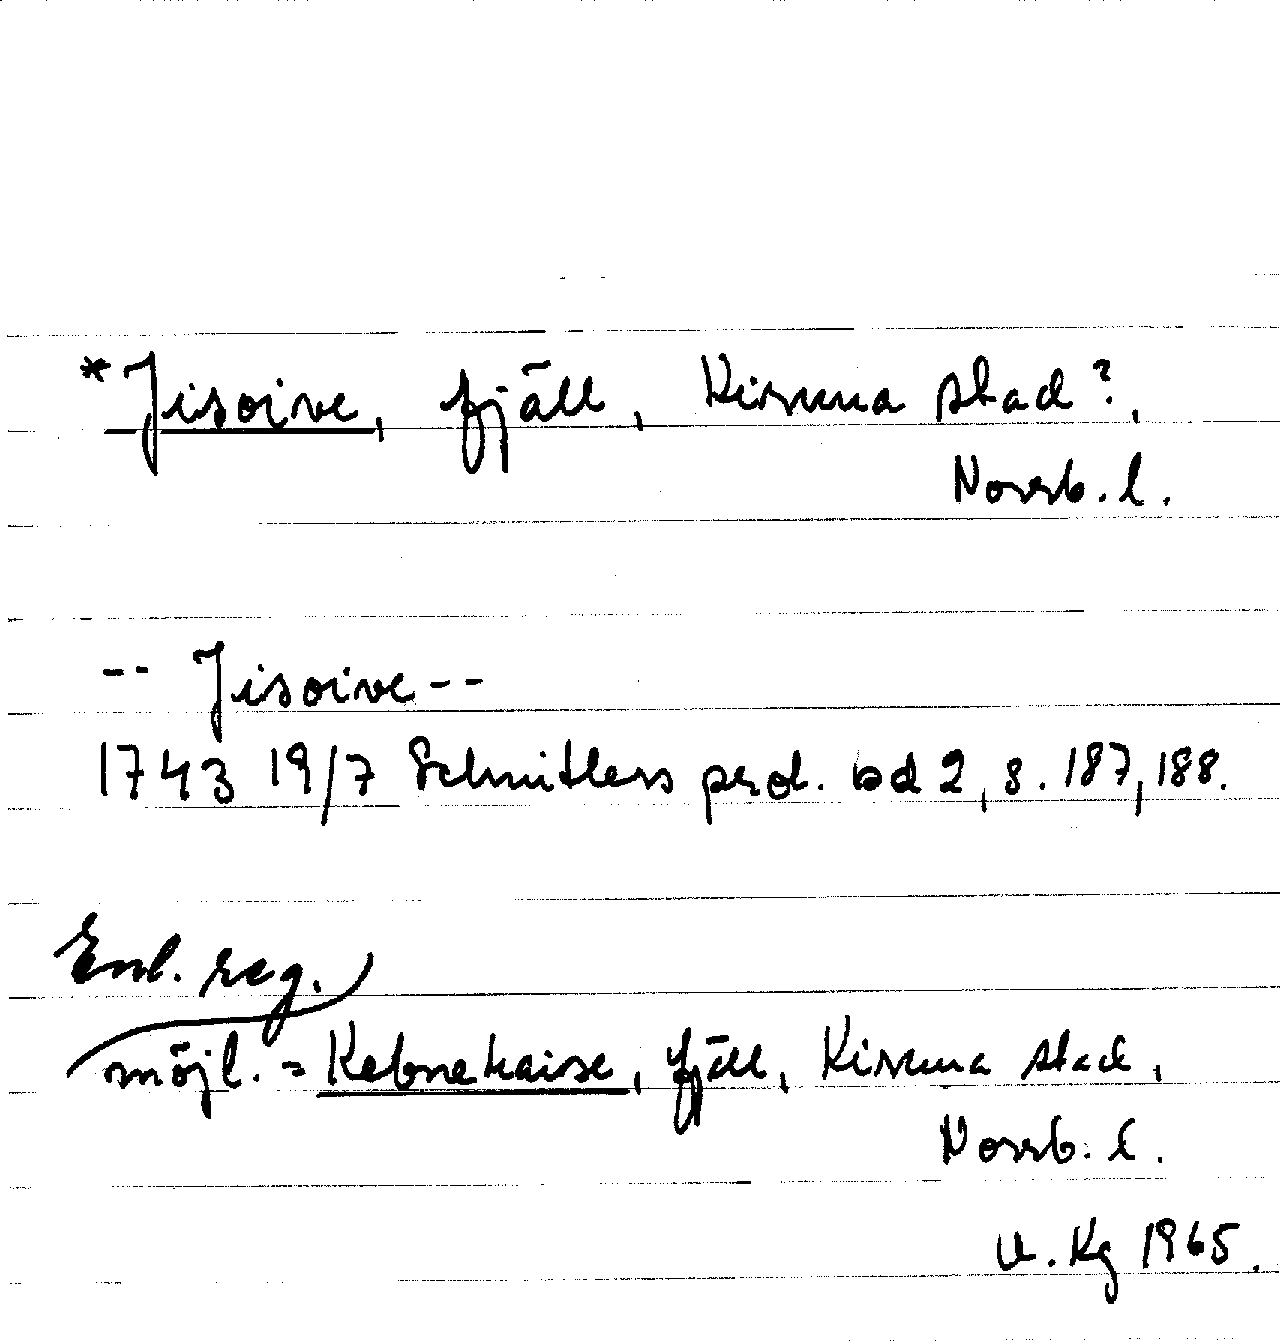 *Jisoive, fjäll, Kiruna stad?,
Norrb. l.
-- Jisoive --
1743 19/7 Schnitlers prot. bd 2, s. 187, 188.
Enl. reg.
möjl. = Kebnekaise, fjäll, Kiruna stad,
Norrb. l.
U. Kg 1965.